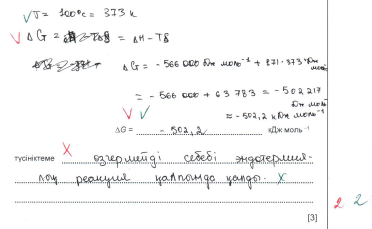 T = 100°C = 373 K
ΔG = ΔH - TS
ΔG = - 566 000 Дж моль⁻¹ + 171·373 Дж моль
= - 566 000 + 63 783 = - 502 217 Дж моль
≈ - 502,2 кДж моль⁻¹
ΔG = - 502,2 кДж моль⁻¹
түсініктеме өзгермейді себебі эндотермия-
лық реакция қалпында қалды.
[3]
2 2